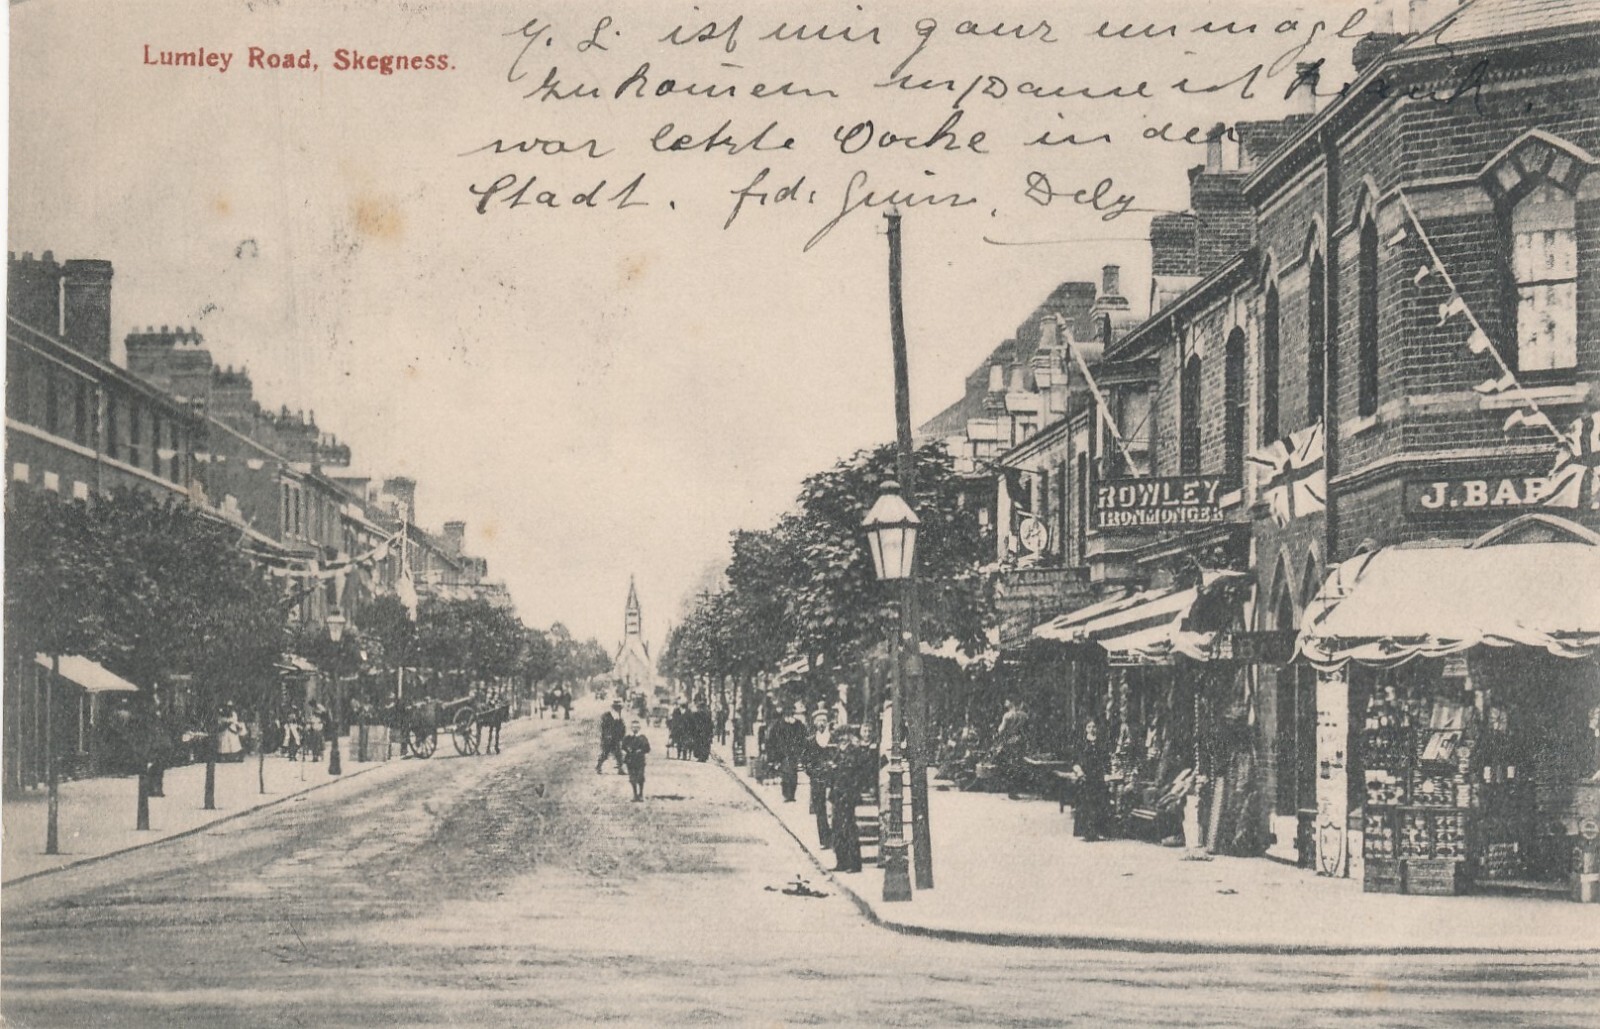 Lumley Road, Skegness.
ist mir ganz unmöglich
zu kommen ist krank.
war letzte Woche in den
Stadt. frdl. Dely
ROWLEY
IRONMONGER
J. BAR